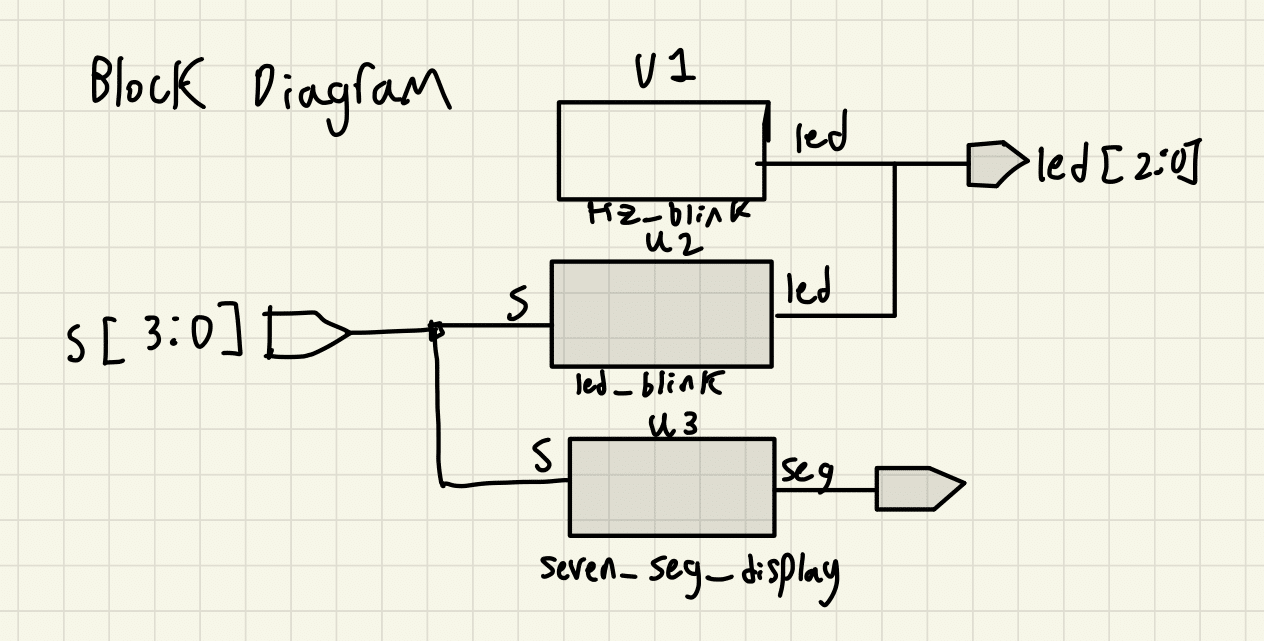 Block Diagram
U1
led
led[2:0]
Hz_blink
u2
S
led
s[3:0]
led_blink
u3
S
seg
seven_seg_display